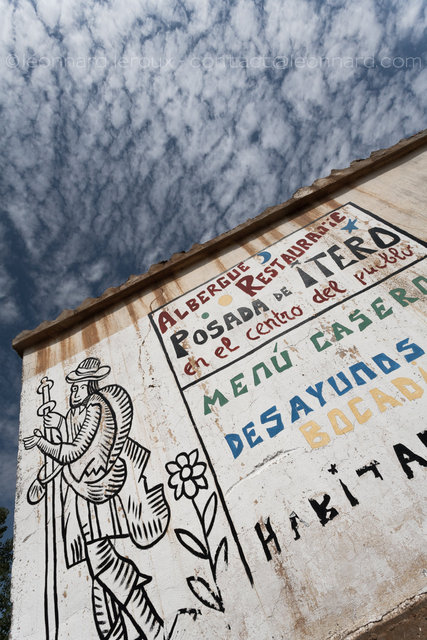 ©leonnard leroux - contact@leonnard.com
ALBERGUE RESTAURANTE
POSADA DE ITERO
en el centro del pueblo
MENÚ CASERO
DESAYUNOS
BOCADI
HABITA